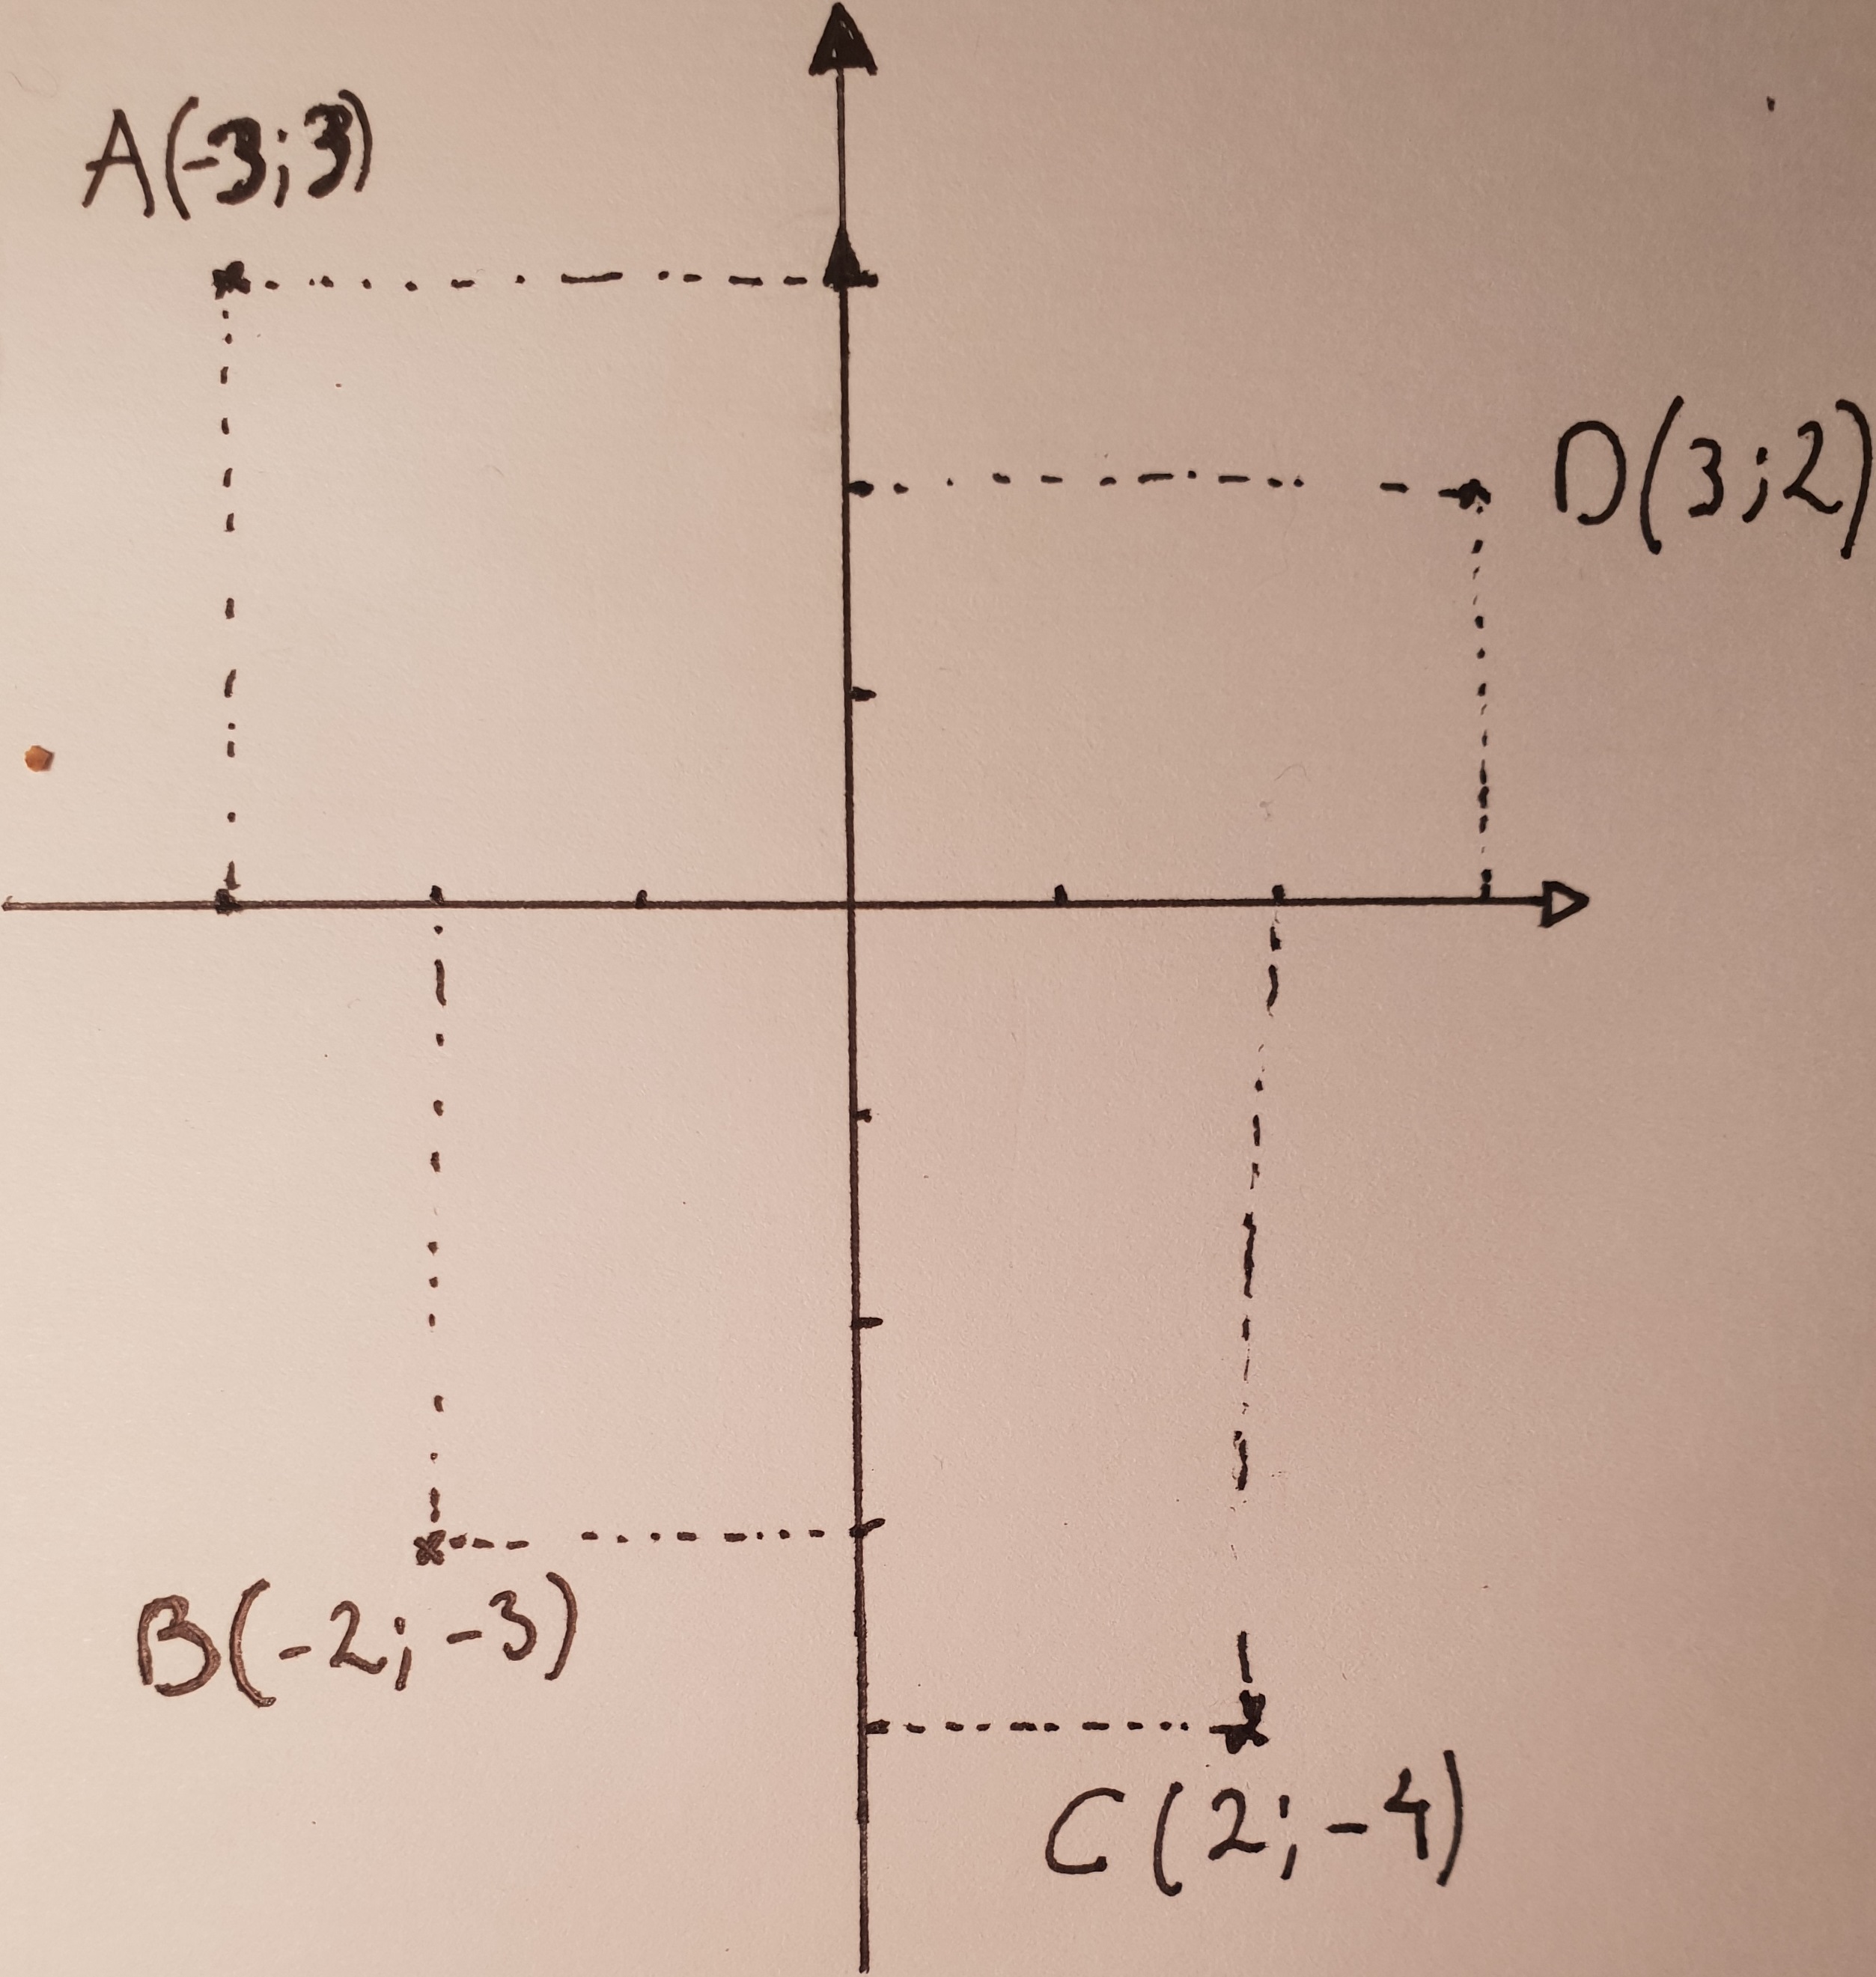 A(-3;3)
D(3;2)
B(-2;-3)
C(2;-4)